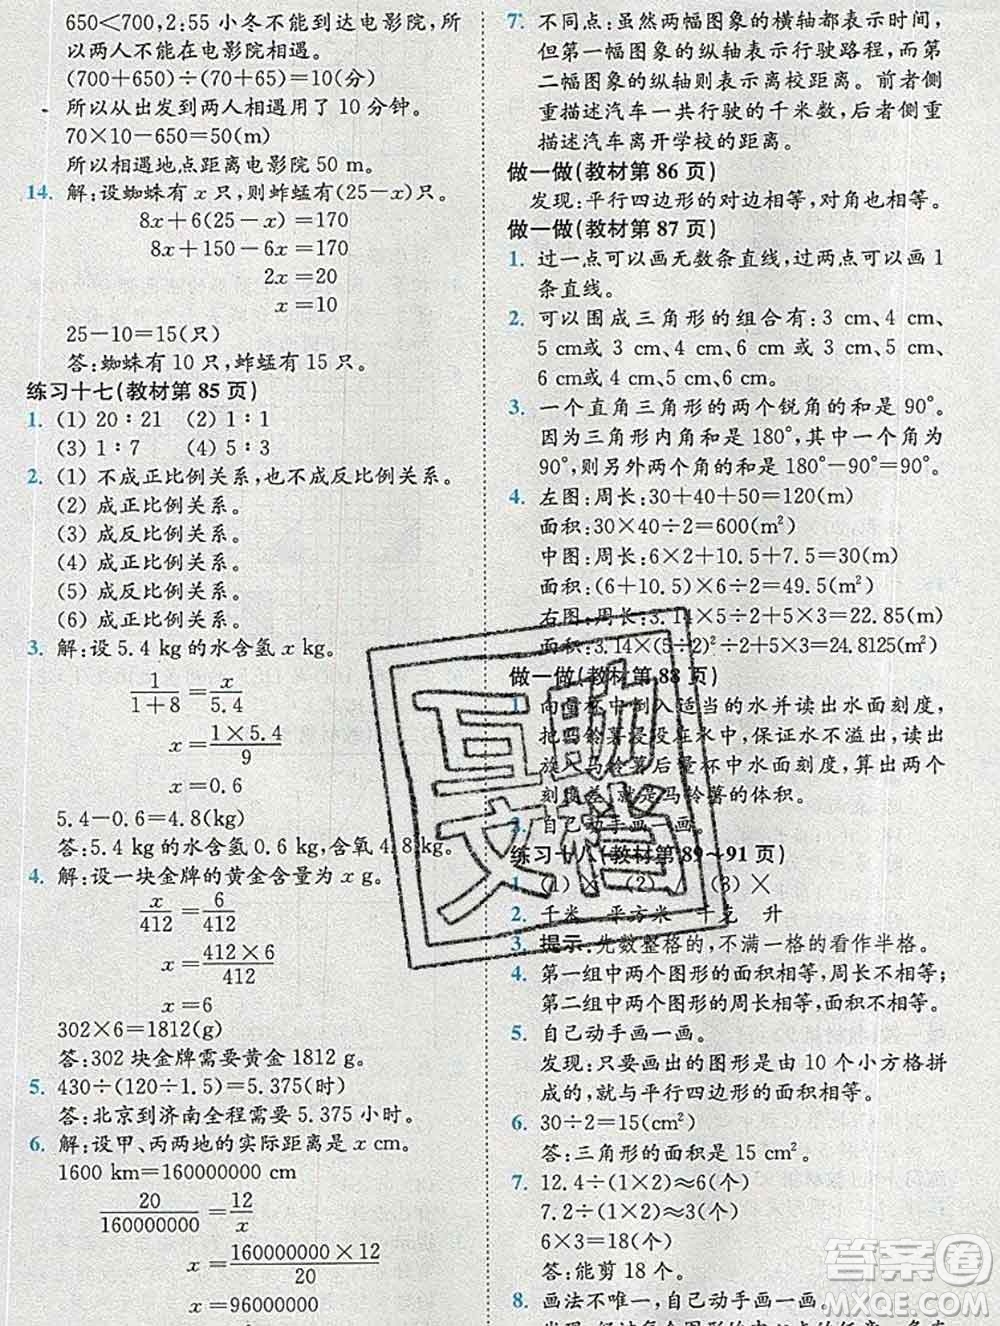 650<700,2:55 小冬不能到达电影院,所
以两人不能在电影院相遇。
(700+650)÷(70+65)=10(分)
所以从出发到两人相遇用了 10 分钟。
70×10-650=50(m)
所以相遇地点距离电影院 50 m。
14. 解:设蜘蛛有 x 只,则蚱蜢有(25-x)只。
8x+6(25-x)=170
8x+150-6x=170
2x=20
x=10
25-10=15(只)
答:蜘蛛有 10 只,蚱蜢有 15 只。
练习十七(教材第 85 页)
1. (1) 20∶21 (2) 1∶1
(3) 1∶7 (4) 5∶3
2. (1) 不成正比例关系,也不成反比例关系。
(2) 成正比例关系。
(3) 成反比例关系。
(4) 成正比例关系。
(5) 成反比例关系。
(6) 成正比例关系。
3. 解:设 5.4 kg 的水含氢 x kg。
1/(1+8)=x/5.4
x=(1×5.4)/9
x=0.6
5.4-0.6=4.8(kg)
答:5.4 kg 的水含氢 0.6 kg,含氧 4.8 kg。
4. 解:设一块金牌的黄金含量为 x g。
x/412=6/412
x=(412×6)/412
x=6
302×6=1812(g)
答:302 块金牌需要黄金 1812 g。
5. 430÷(120÷1.5)=5.375(时)
答:北京到济南全程需要 5.375 小时。
6. 解:设甲、丙两地的实际距离是 x cm。
1600 km=160000000 cm
20/160000000=12/x
x=(160000000×12)/20
x=96000000
7. 不同点:虽然两幅图象的横轴都表示时间,
但第一幅图象的纵轴表示行驶路程,而第
二幅图象的纵轴则表示离校距离。前者侧
重描述汽车一共行驶的千米数,后者侧重
描述汽车离开学校的距离。
做一做(教材第 86 页)
发现:平行四边形的对边相等,对角也相等。
做一做(教材第 87 页)
1. 过一点可以画无数条直线,过两点可以画 1
条直线。
2. 可以围成三角形的组合有:3 cm、4 cm、
5 cm或 3 cm、4 cm、6 cm或 3 cm、5 cm、
6 cm或 4 cm、5 cm、6 cm。
3. 一个直角三角形的两个锐角的和是 90°。
因为三角形内角和是 180°,其中一个角为
90°,则另外两个角的和是 180°-90°=90°。
4. 左图:周长:30+40+50=120(m)
面积:30×40÷2=600(m²)
中图:周长:6×2+10.5+7.5=30(m)
面积:(6+10.5)×6÷2=49.5(m²)
右图:周长:3.14×5÷2+5+5×3=22.85(m)
面积:3.14×(5÷2)²÷2+5×3=24.8125(m²)
做一做(教材第 88 页)
1. 向量杯中倒入适当的水并读出水面刻度,
把马铃薯浸没在水中,保证水不溢出,读出
放入马铃薯后量杯中水面刻度,算出两个
刻度差,就是马铃薯的体积。
2. 自己动手画一画。
练习十八(教材第 89~91 页)
1. (1) × (2) × (3) ×
2. 千米 平方米 千克 升
3. 提示:先数整格的,不满一格的看作半格。
4. 第一组中两个图形的面积相等,周长不相等;
第二组中两个图形的周长相等,面积不相等。
5. 自己动手画一画。
发现:只要画出的图形是由 10 个小方格拼
成的,就与平行四边形的面积相等。
6. 30÷2=15(cm²)
答:三角形的面积是 15 cm²。
7. 12.4÷(1×2)≈6(个)
7.2÷(1×2)≈3(个)
6×3=18(个)
答:能剪 18 个。
8. 画法不唯一,自己动手画一画。
互助
文档
答案圈
MXQE.COM